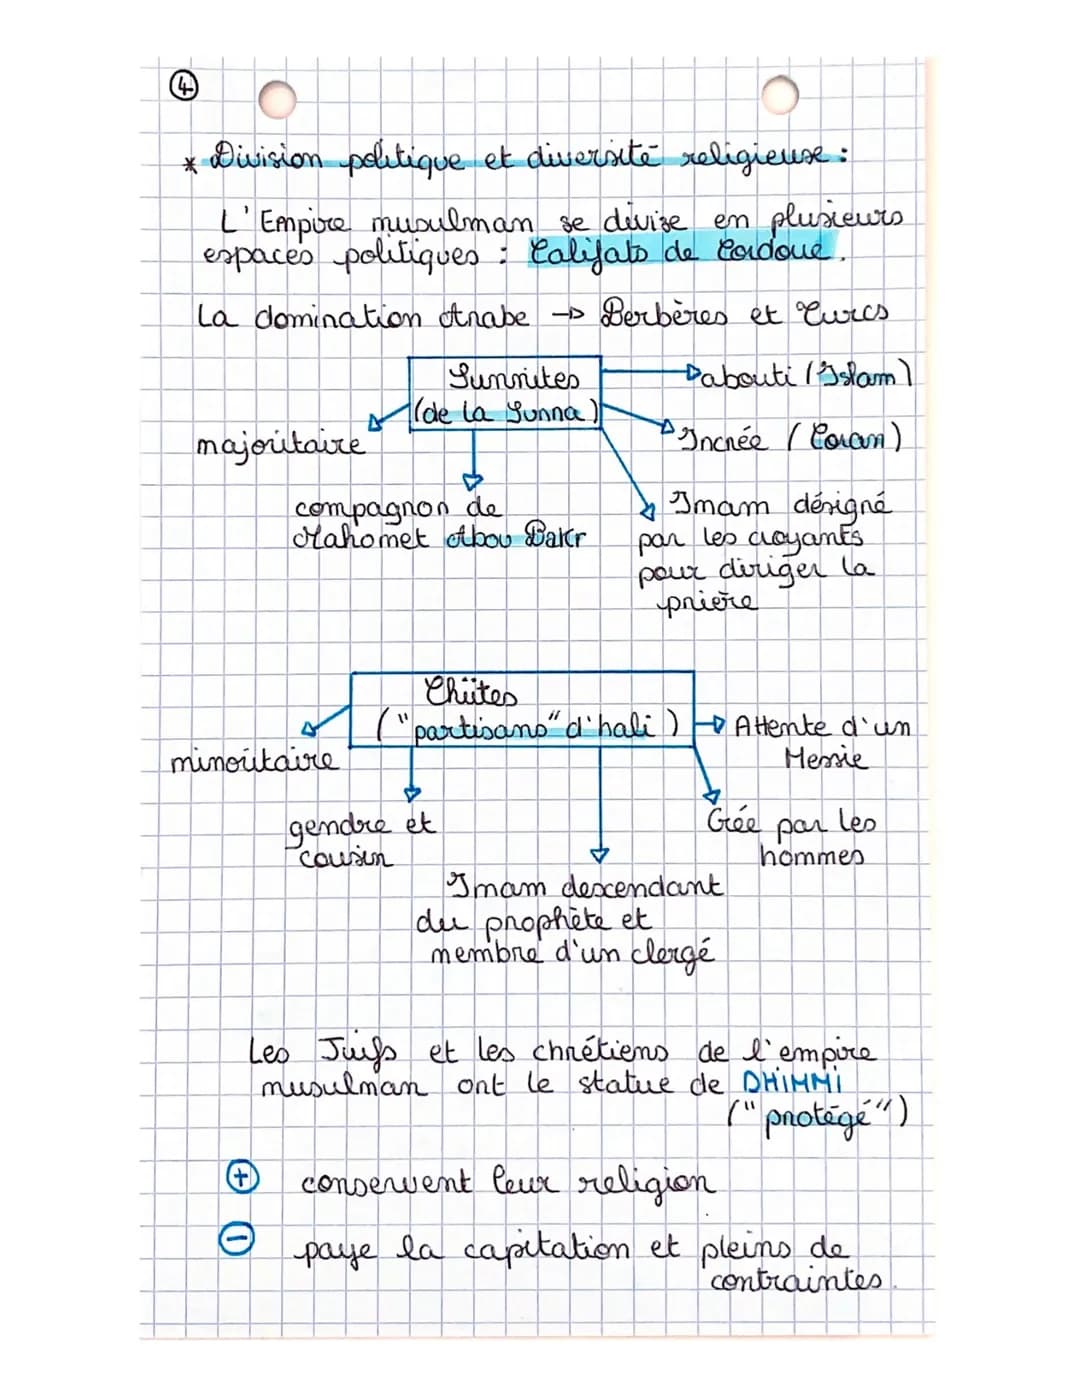 4
* Division politique et diversité religieuse :
L'Empire musulman se divise en plusieurs
espaces politiques : Califats de Cordoue.
La domination Arabe → Berbères et Turcs
Sunnites
(de la Sunna)
abouti (Islam)
Incréé (Coran)
majoritaire
compagnon de
Mahomet Abou Bakr
Imam désigné
par les croyants
pour diriger la
prière
Chiites
("partisans" d'hali)
Attente d'un
Messie
minoritaire
gendre et
cousin
Créé par les
hommes
Imam descendant
du prophète et
membre d'un clergé
Les Juifs et les chrétiens de l'empire
musulman ont le statue de DHIMMI
("protégé")
+ conservent leur religion
- paye la capitation et pleins de
contraintes.